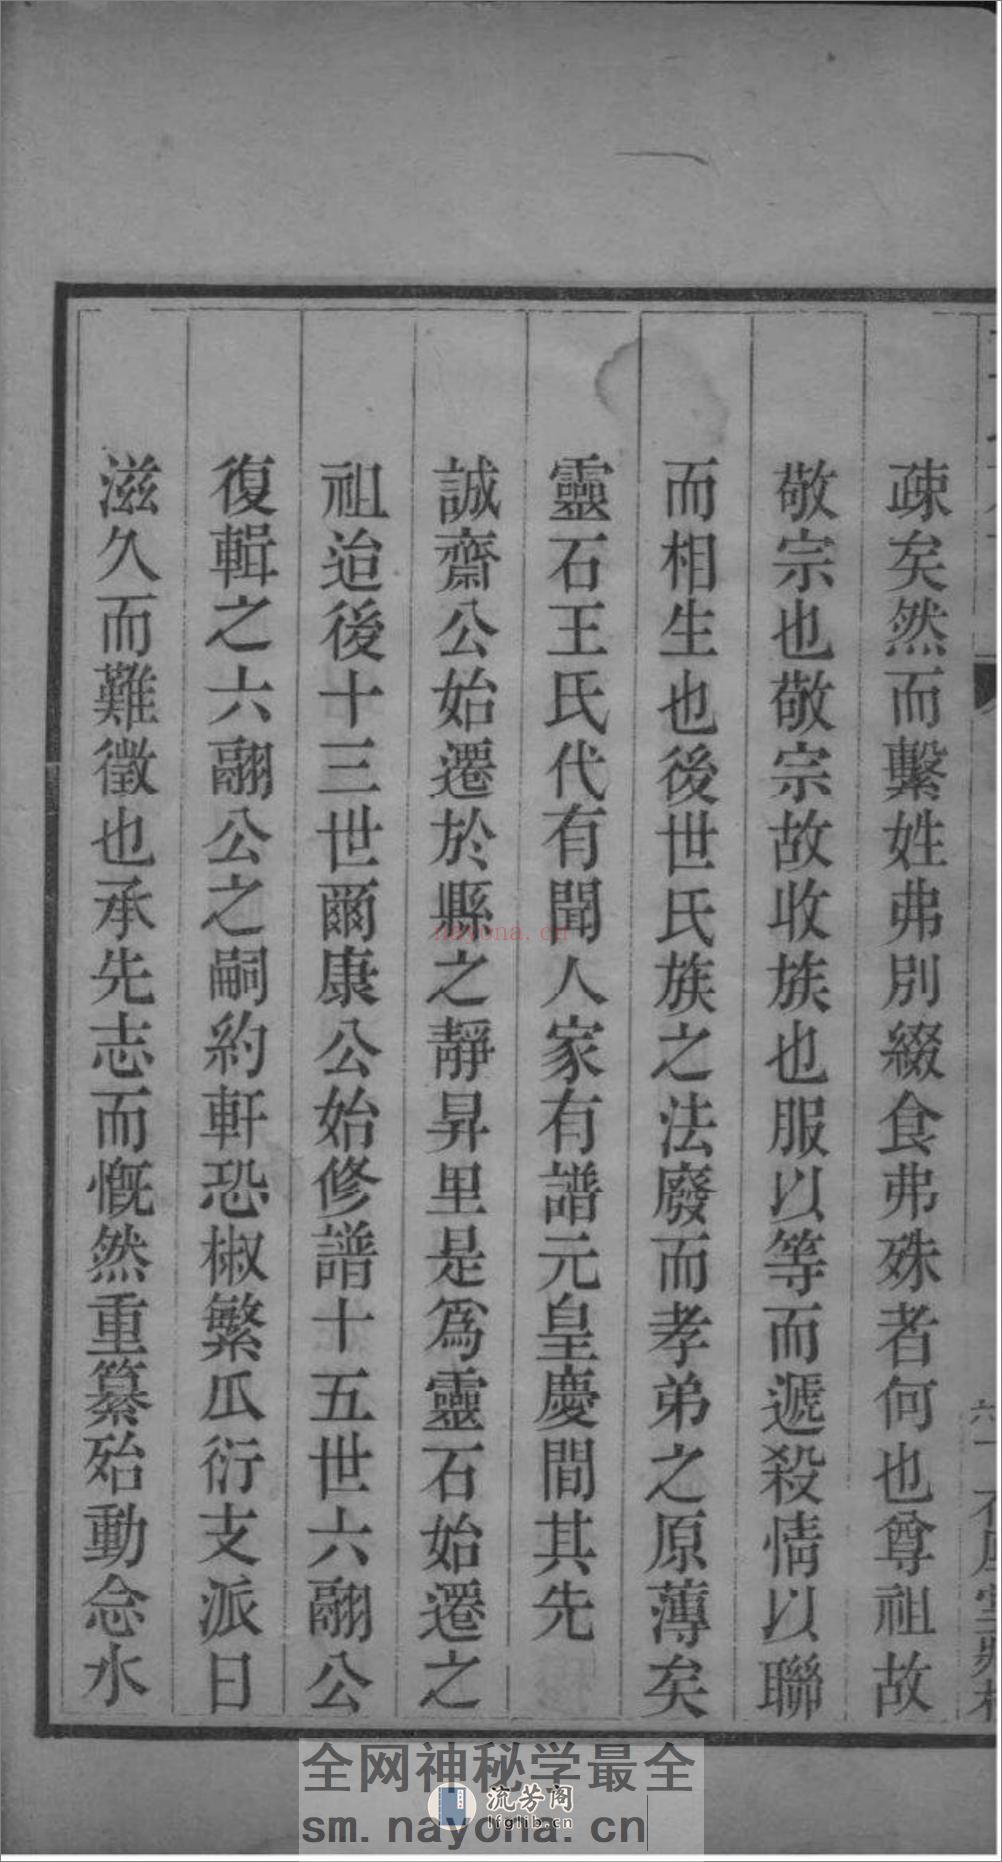 疎矣然而繫姓弗別綴食弗殊者何也尊祖故
敬宗也敬宗故收族也服以等而遞殺情以聯
而相生也後世氏族之法廢而孝弟之原薄矣
靈石王氏代有聞人家有譜元皇慶間其先
誠齋公始遷於縣之靜昇里是爲靈石始遷之
祖迨後十三世爾康公始修譜十五世六翮公
復輯之六翮公之嗣約軒恐椒繁瓜衍支派日
滋久而難徵也承先志而慨然重纂殆動念水
nayona.cn
全网神秘学最全
流芳阁
lfglib.cn
sm.nayona.cn